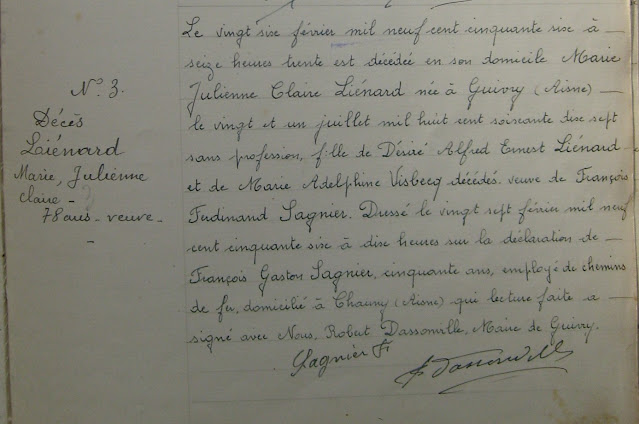 Le vingt sise février mil neuf cent cinquante sise à
seize heures trente est décédée en son domicile Marie
Julienne Claire Liénard née à Guivry (Aisne)
le vingt et un juillet mil huit cent soixante disc sept
sans profession, fille de Désiré Alfred Ernest Liénard
et de Marie Adelphine Visbecq décédés. veuve de François
Ferdinand Sagnier. Dressé le vingt sept février mil neuf
cent cinquante sise à disc heures sur la déclaration de
François Gaston Sagnier, cinquante ans, employé de chemins
de fer, domicilié à Chauny (Aisne) qui lecture faite a
signé avec Nous, Robert Dassonville, Maire de Guivry.
Sagnier F
Dassonville
N° 3.
Décès
Liénard
Marie, Julienne
Claire -
78 ans - veuve -